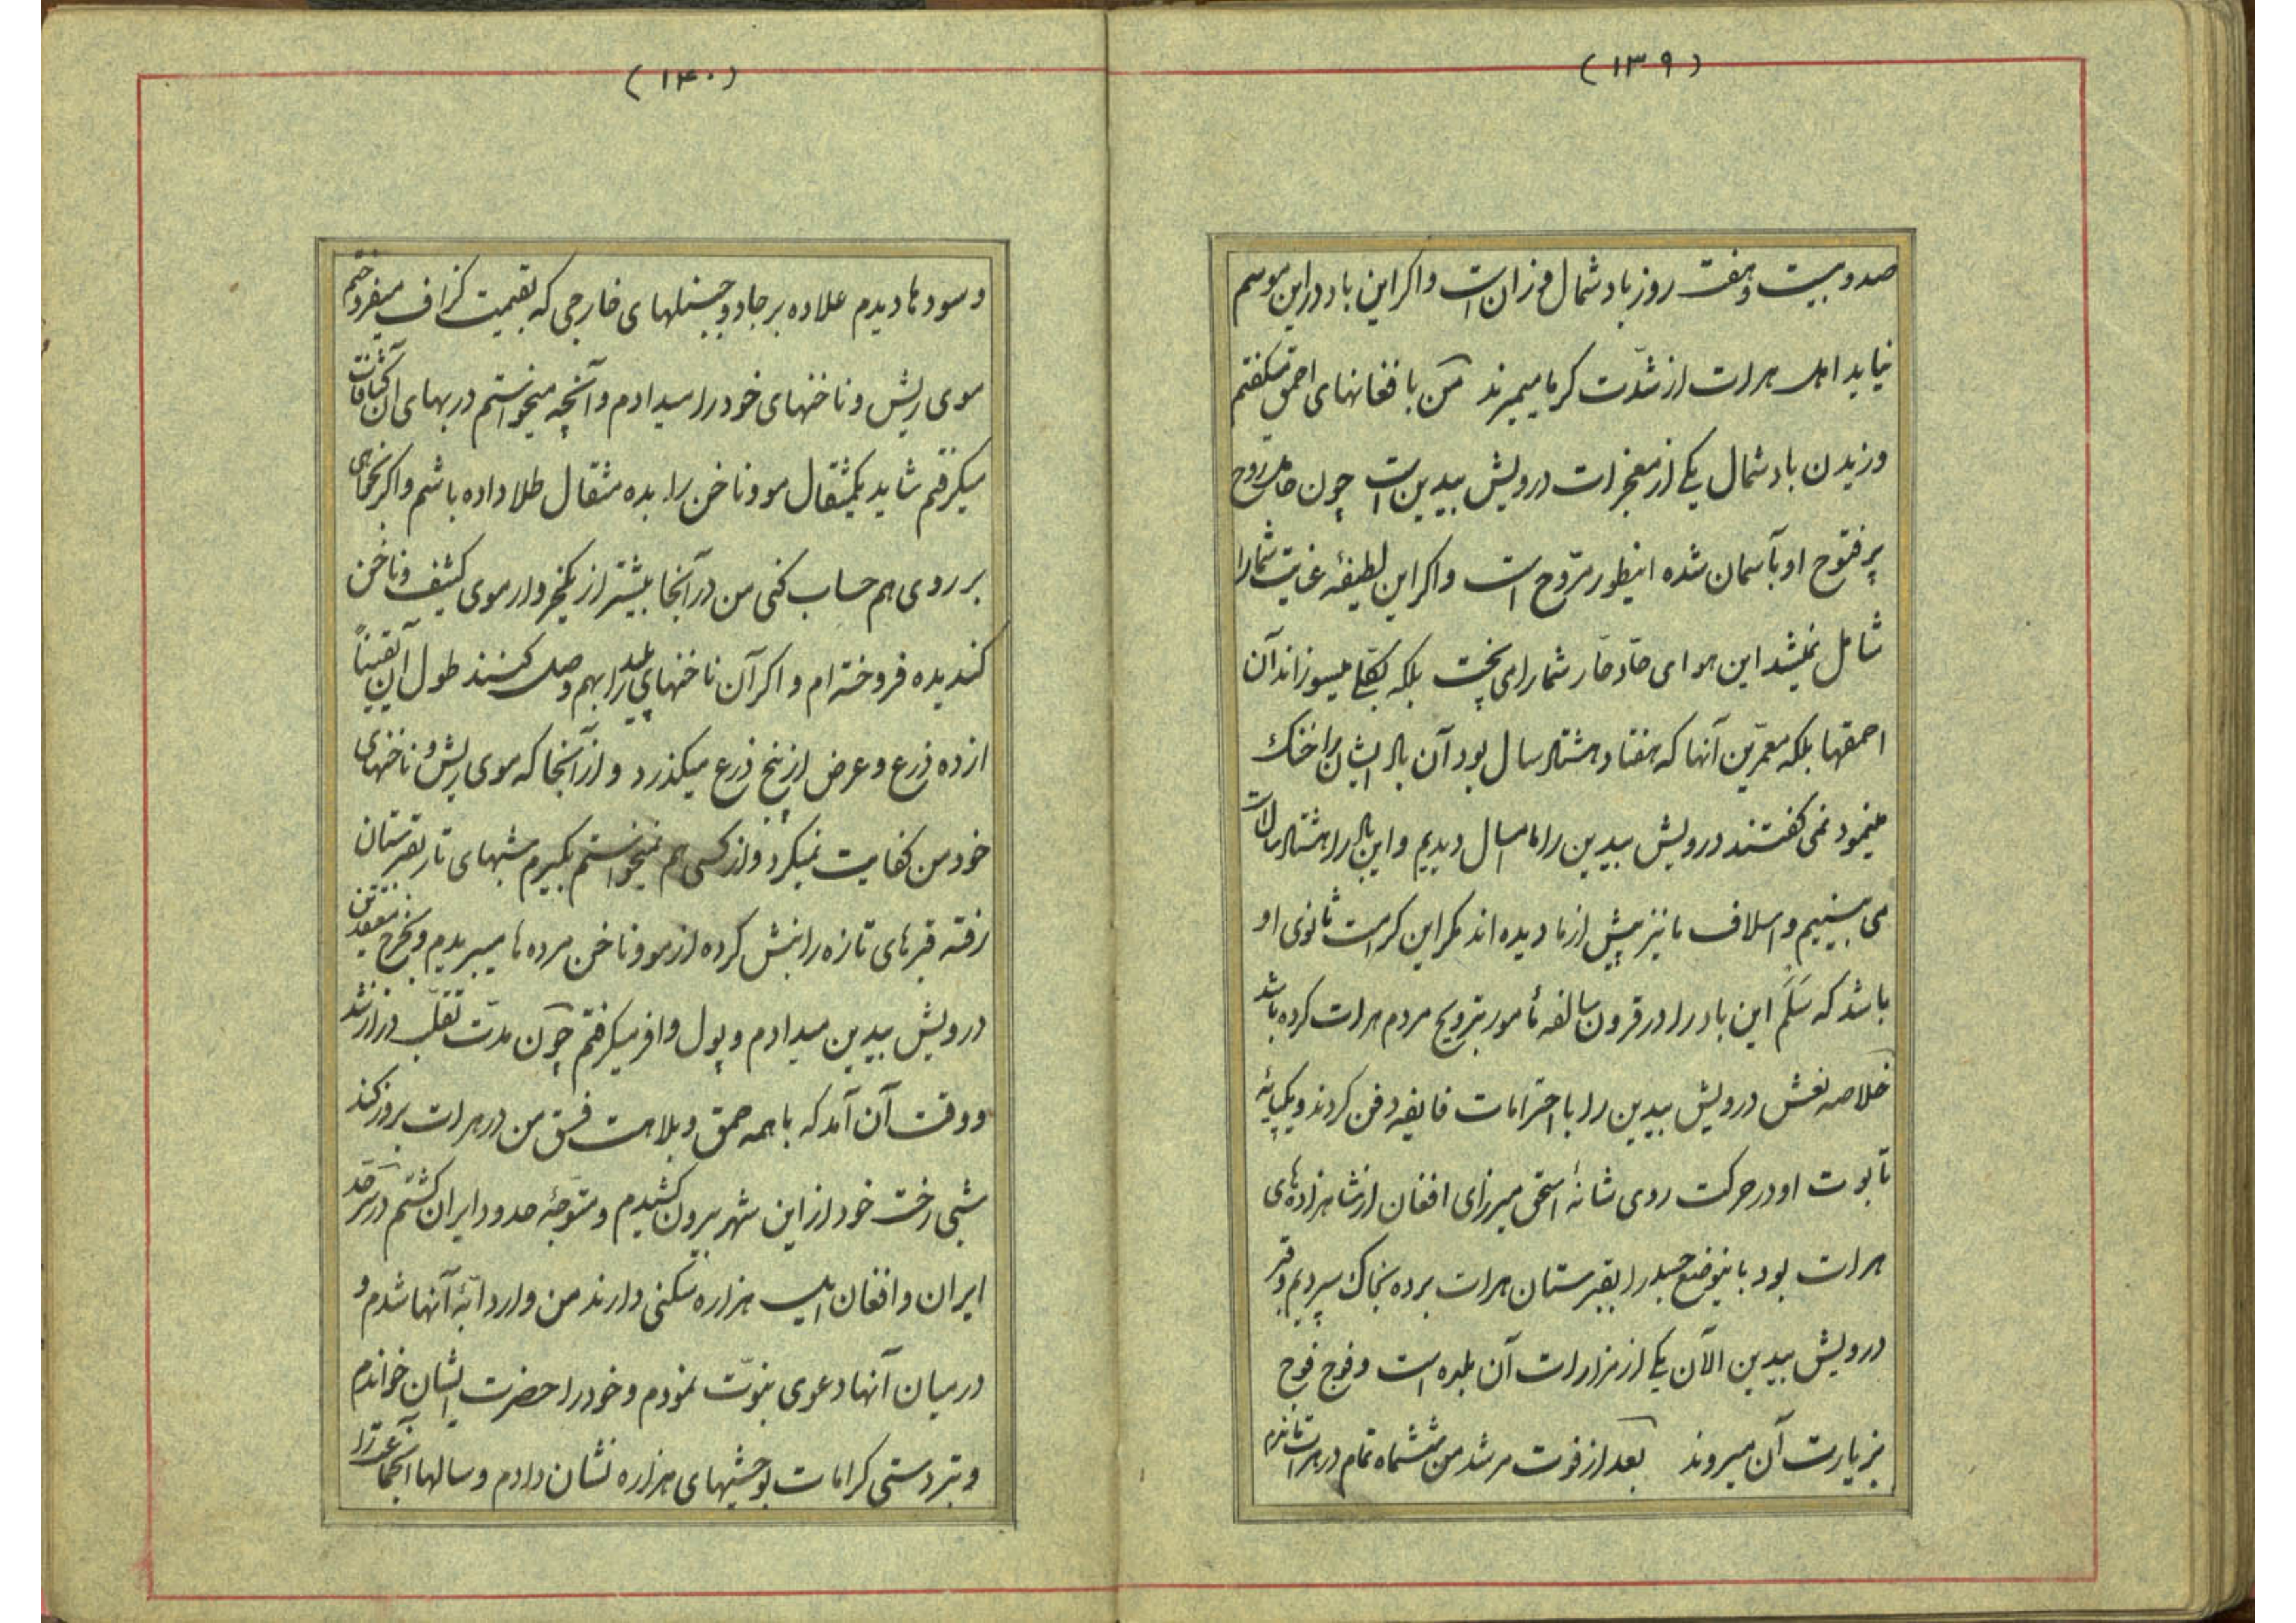 (۱۳۹)
صد و بیست و هفت روز باد شمال وزان است و اکر این باد در این موسم
نیاید اهل هرات از شدّت کرما میمیرند من بافغانهای احمق میکفتم
وزیدن باد شمال یکی از معجزات درویش بیدین است چون حامل روح
پر فتوح او بآسمان شده اینطور مروّح است و اکر این لطیفهٔ غایت شما را
شامل نمیشد این هوای حادّ حارّ شما را می پخت بلکه بکلی میسوزاند آن
احمقها بلکه معمرّین آنها که هفتاد هشتاد سال بود آن باد ایشان را خنک
مینمود نمی کفتند درویش بیدین را ما امسال دیدیم و این باد را هشتاد سال است
می بینیم و اسلاف ما نیز پیش از ما دیده اند مکر این کرامت ثانوی او
باشد که سَلَّم این باد را در قرون سالفه مأمور بترویح مردم هرات کرده باشد
خلاصه نعش درویش بیدین را با احترامات فایقه دفن کردند و یکپایهٔ
تابوت او در حرکت روی شانهٔ اسحق میرزای افغان از شاهزاده های
هرات بود باینوضع جسد را بقبرستان هرات برده بخاک سپردیم و قبر
درویش بیدین الآن یکی از مزارات آن بلده است و فوج فوج
بزیارت آن میروند بعد از فوت مرشد من ششماه تمام در هرات ماندم
(۱۴۰)
و سودها دیدم علاوه بر جادو جنبلهای خارجی که بقیمت کزاف میفروختم
موی ریش و ناخنهای خود را میدادم و آنچه میخواستم در بهای آن کثافات
میکرفتم شاید یکمثقال مو و ناخن را بده مثقال طلا داده باشم و اکر بخواهی
بر روی هم حساب کنی من در آنجا بیشتر از یکخروار موی کثیف و ناخن
کندیده فروخته ام و اکر آن ناخنهای پلید را بهم وصل کنند طول آن یقیناً
از ده ذرع و عرض از پنج ذرع میکذرد و از آنجا که موی ریش و ناخنهای
خود من کفایت نمیکرد و از کسی هم نمیخواستم بکیرم شبهای تار بقبرستان
رفته قبرهای تازه را نبش کرده از مو و ناخن مرده ها میبریدم و بخرج معتقدین
درویش بیدین میدادم و پول وافر میکرفتم چون مدّت تقلّب دراز شد
و وقت آن آمد که با همه حمق و بلاهت فسق من در هرات بروز کند
شبی رخت خود از این شهر بیرون کشیدم و متوجّه حدود ایران کشتم در سرحد
ایران و افغان ایل هزاره سکنی دارند من وارد ابّهٔ آنها شدم و
در میان آنها دعوی نبوّت نمودم و خود را حضرت ایشان خواندم
و بتردستی کرامات بوحشیهای هزاره نشان دادم و سالها آنجماعت را